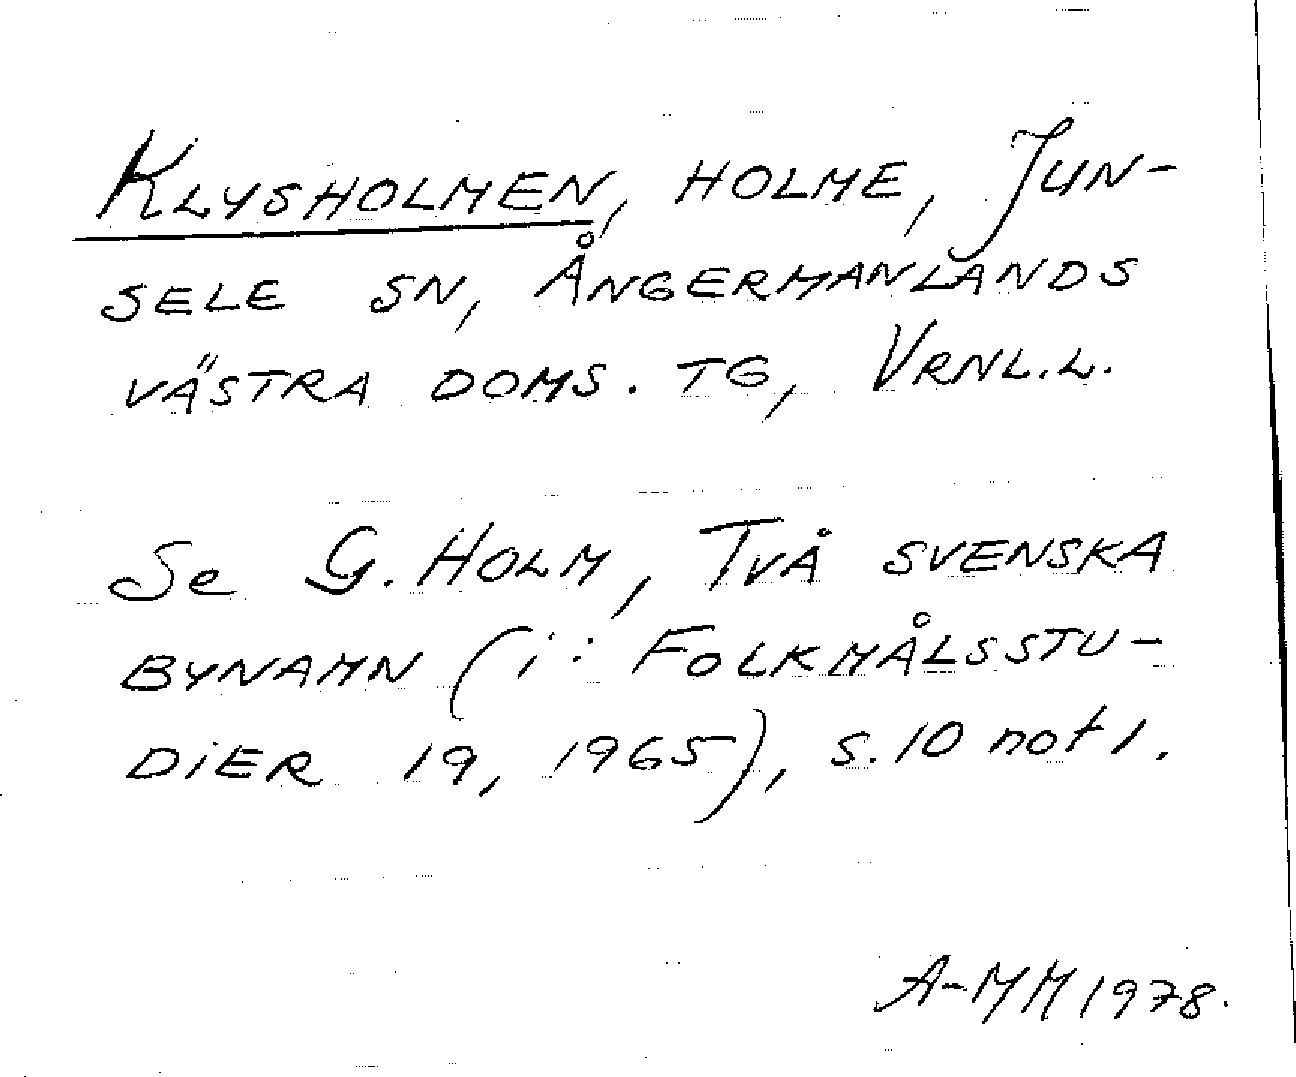 KLYSHOLMEN, HOLME, JUN-
SELE SN, ÅNGERMANLANDS
VÄSTRA DOMS. TG, VRNL.L.
Se G. HOLM, TVÅ SVENSKA
BYNAMN (i: FOLKMÅLSSTU-
DIER 19, 1965), S. 10 not 1.
A-MM 1978.